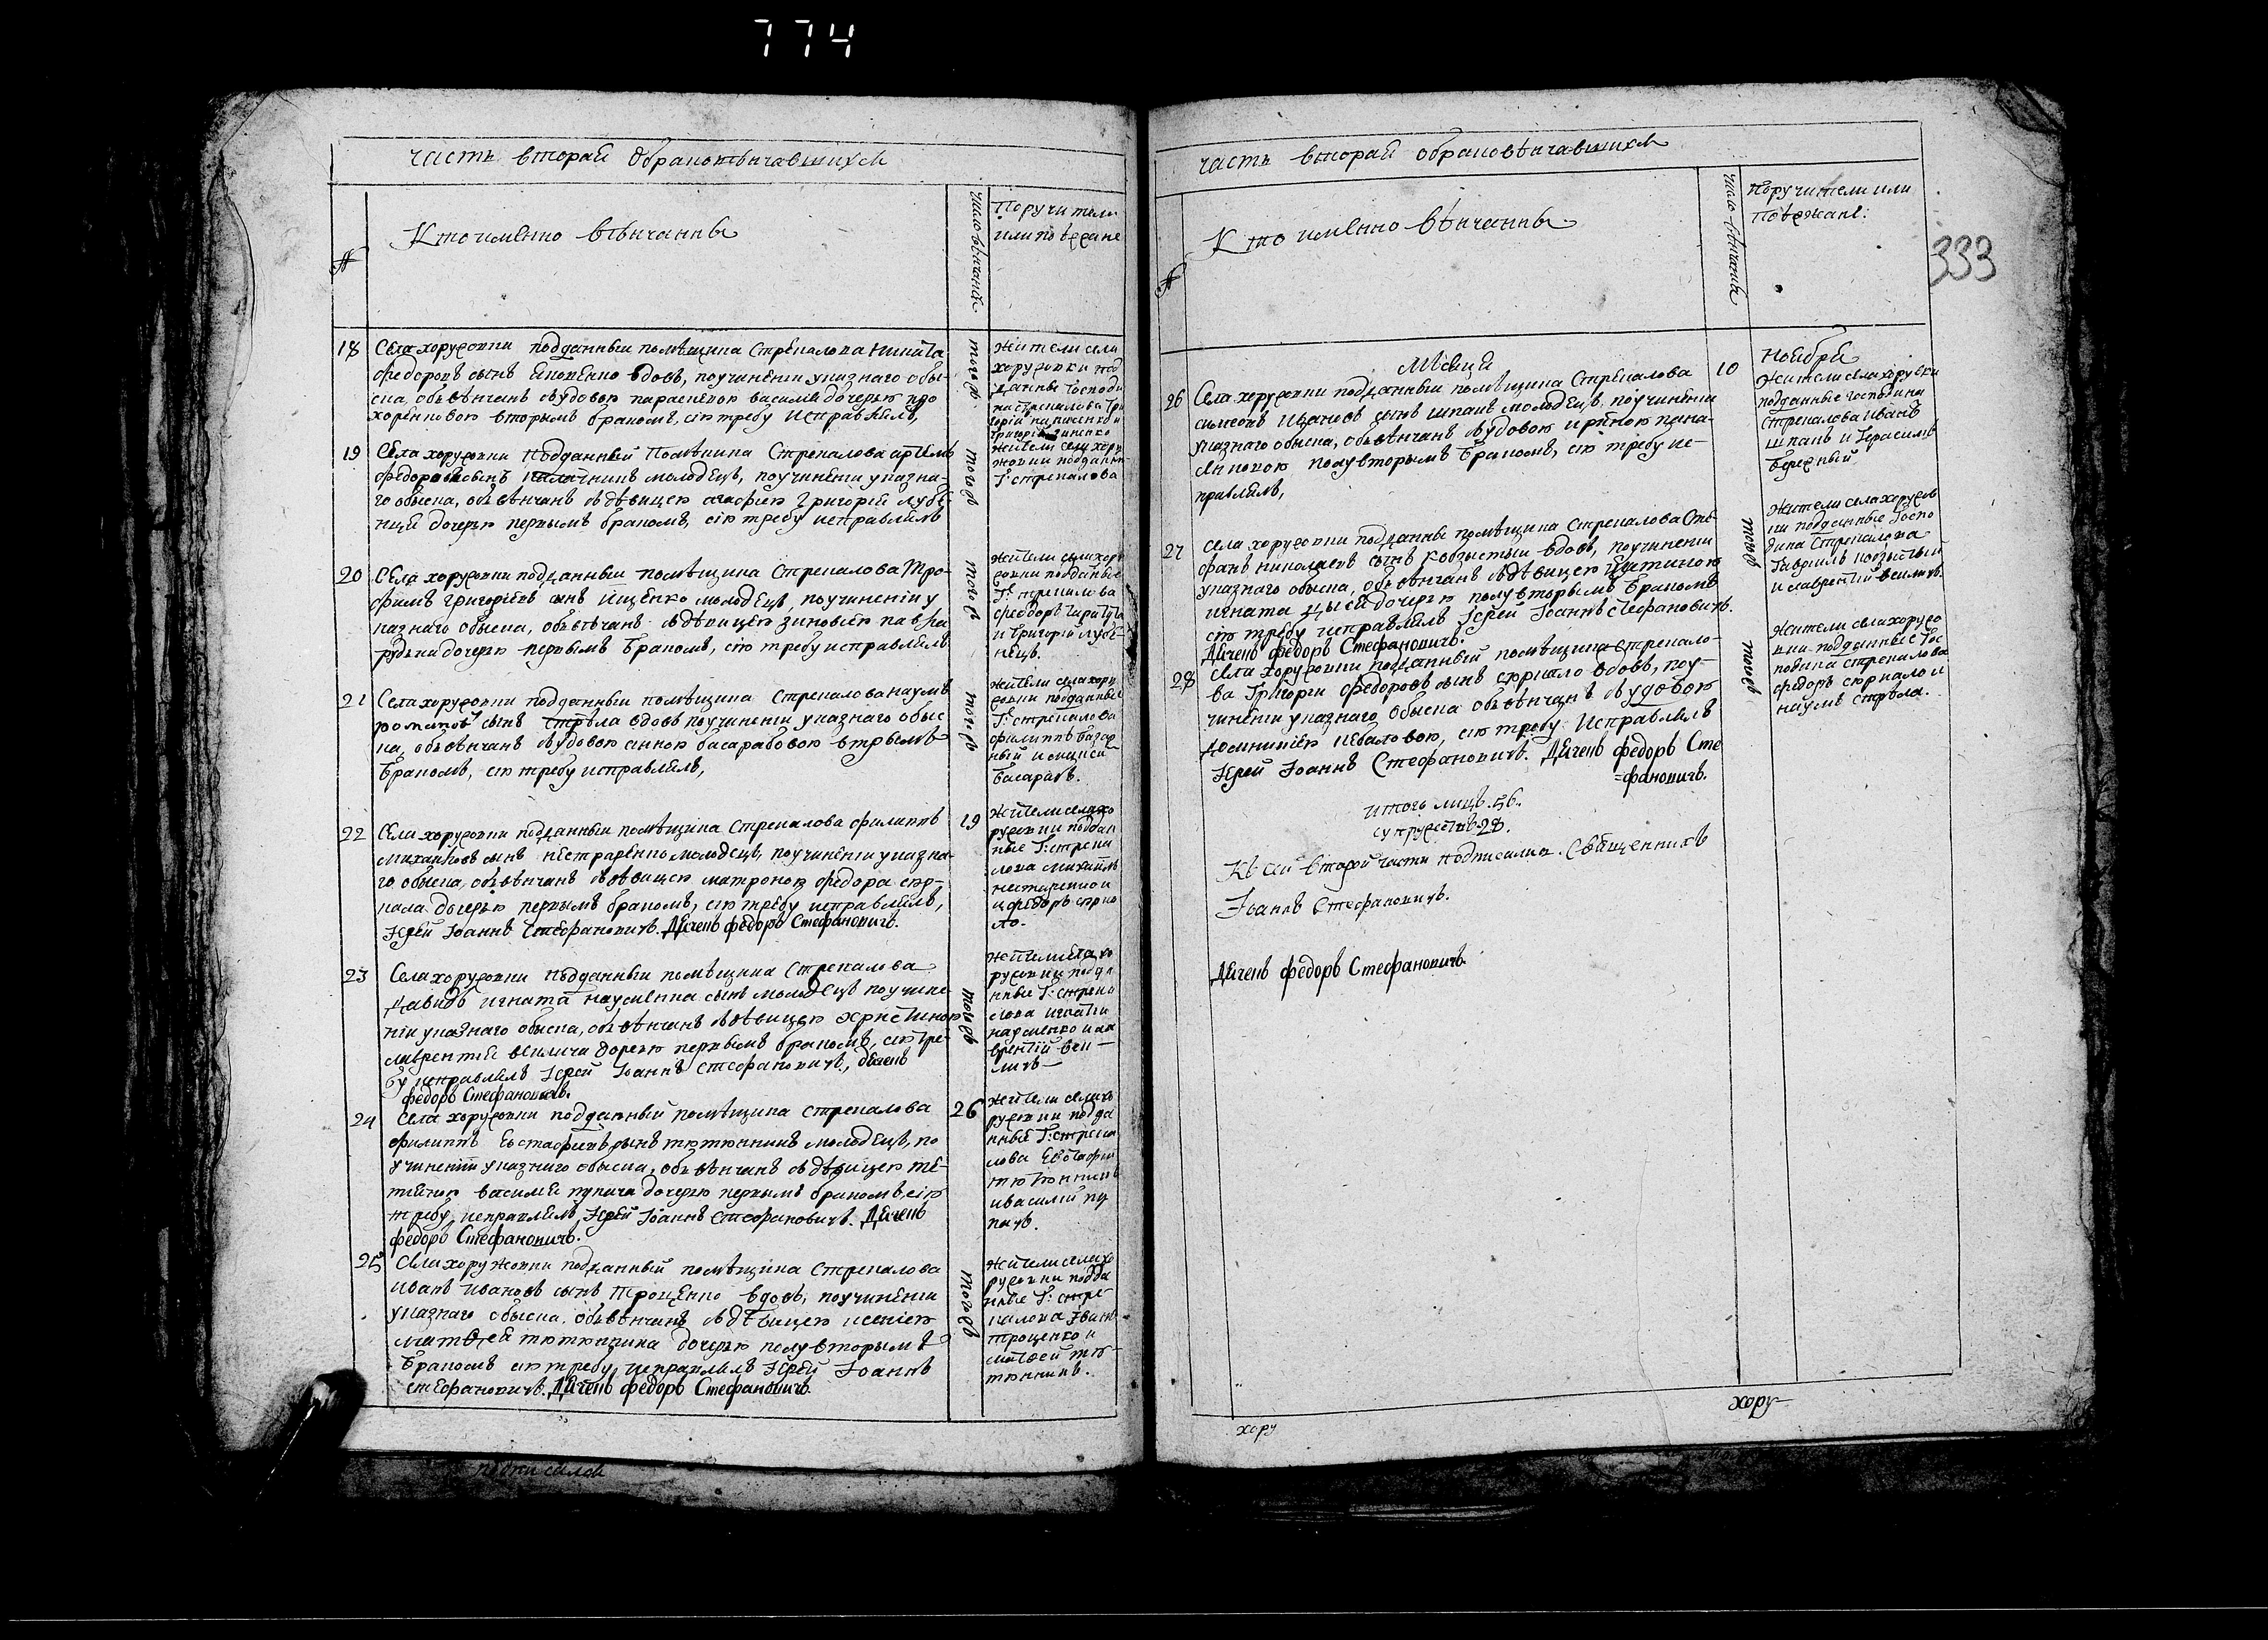 774
часть вторая обраковѣнчавшихся
№
Кто именно вѣнчанны
число вѣнчанія
Поручители
или поезжане
18
Села хоружовки подданный помѣщика Стрекалова никита
федоровъ сынъ вдовъ, поучинении указнаго обы-
ска, обвѣнчанъ звдовою параскевою василия дочерью про
хоренковою вторымъ бракомъ, сию требу исправлялъ,
того дв
жители села
хоружовки под
данны господи
на стрекалова гри
горій
григорій
19
Села хоружовки подданный помѣщика Стрекалова артемъ
федоровъ сынъ калачникъ молодецъ, поучинении указна-
го обыска, обвѣнчанъ здѣвицею агафиею григория лубе-
нця дочерью первымъ бракомъ, сию требу исправлялъ
того дв
жители села хору
жовки подданны
Г: стрекалова
20
Села хоружовки подданный помѣщика Стрекалова тро-
фимъ григориевъ сынъ ищенко молодецъ, поучинении у
казнаго обыска, обвѣнчанъ здѣвицею зиновиею павла
рудьки дочерью первымъ бракомъ, сию требу исправлялъ
того дв
жители села хору
жовки подданные
Г: стрекалова
федоръ
и григорій лубе-
нецъ.
21
Села хоружовки подданный помѣщика Стрекалова наумъ
романовъ сынъ стрѣла вдовъ поучинении указнаго обыс
ка, обвѣнчанъ звдовою анною басарабовою втрымъ
бракомъ, сию требу исправлялъ,
того дв
жители села хору
жовки подданные
Г: стрекалова
филиппъ
ный и
басарабъ.
22
Села хоружовки подданный помѣщика Стрекалова филиппъ
михайловъ сынъ нестаренко молодецъ, поучинении указна-
го обыска, обвѣнчанъ здѣвицею матроною федора скр-
кала дочерью первымъ бракомъ, сию требу исправлялъ,
Іерей Іоаннъ Стефановичъ. Дячекъ федоръ Стефановичъ.
19
жители села хо
ружовки поддан
ные Г: стрека
лова михайлъ
нестаренко и
федоръ
ло.
23
Села хоружовки подданный помѣщика Стрекалова
давидъ игната науменка сынъ молодецъ поучине
нии указнаго обыска, обвѣнчанъ здѣвицею христиною
лаврентия велича дочерью первымъ бракомъ, сию тре-
бу исправлялъ Іерей Іоаннъ Стефановичъ, дячекъ
федоръ Стефановичъ.
того дв
жители села хо
ружовки подда
нные Г: стрека
лова игнатъ
науменко и ла
врентій вели-
личъ
24
Села хоружовки подданный помѣщика стрекалова
филиппъ евстафиевъ сынъ тютюнникъ молодецъ, по
учинении указнаго обыска, обвѣнчанъ здѣвицею те-
тяною василия пугача дочерью первымъ бракомъ, сию
требу исправлялъ Іерей Іоаннъ Стефановичъ. Дячекъ
федоръ Стефановичъ.
26
жители села хо
ружовки подда
нные Г: стрека
лова Евстафий
тютюнникъ
и василий пу
гачъ.
25
Села хоружовки подданный помѣщика стрекалова
Иванъ Ивановъ сынъ троценко вдовъ, поучинении
указнаго обыска, обвѣнчанъ здѣвицею ксениею
матѳея тютюнника дочерью полувторымъ
бракомъ сию требу исправлялъ Іерей Іоаннъ
Стефановичъ. Дячекъ федоръ Стефановичъ.
того дв
жители села хо
ружовки подда
нные Г: стре-
калова Іванъ
троценко и
матѳей тю-
тюнникъ.
часть вторая обраковѣнчавшихся
№
Кто именно вѣнчанны
число вѣнчанія
Поручители или
поезжане:
333
Мѣсяця
ноября
26
Села хоружовки подданный помѣщика Стрекалова
симеонъ Ивановъ сынъ шпакъ молодецъ поучинении
указнаго обыска, обвѣнчанъ звдовою ириною
полувторымъ бракомъ, сию требу ис-
правлялъ,
10
жители села хоружовки
подданные господина
стрекалова иванъ
шпакъ и герасимъ
27
Села хоружовки подданный помѣщика Стрекалова сте-
фанъ николаевъ сынъ кобзистый вдовъ, поучинении
указнаго обыска, обвѣнчанъ здѣвицею
игната дочерью полувторымъ бракомъ
сию требу исправлялъ Іерей Іоаннъ Стефановичъ.
Дячекъ федоръ Стефановичъ.
того дв
жители села хоружов
ки подданные госпо
дина Стрекалова
гавриилъ кобзистый
и лаврентий величъ.
28
Села хоружовки подданный помѣщика стрекало-
ва григорій федоровъ сынъ вдовъ, поу-
чинении указнаго обыска обвѣнчанъ звдовою
домникиею сию требу исправлялъ
Іерей Іоаннъ Стефановичъ. Дячекъ федоръ Сте
=фановичъ.
того дв
жители села хоружо
вки подданные гос
подина стрекалова
федоръ и
наумъ стрѣла.
итого лицъ. 56.
супружествъ 28.
Къ сей второй части подписался. Священникъ
Іоаннъ Стефановичъ.
Дячекъ федоръ Стефановичъ.
хору
хору-
подписался